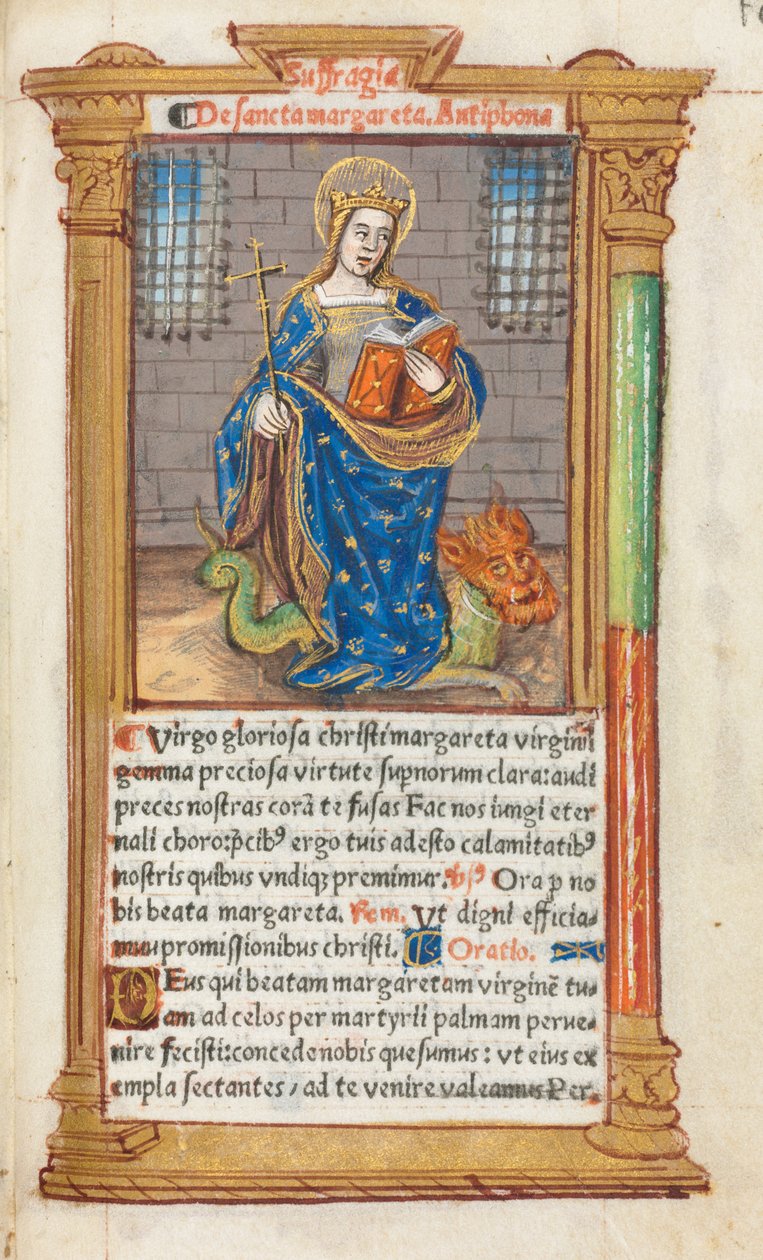 Suffragia
De sancta margareta. Antiphona
Virgo gloriosa christi margareta virginū
gemma preciosa virtute supnorum clara: audi
preces nostras corā te fusas Fac nos iungi eter
nali choro: p̄cibꝰ ergo tuis adesto calamitatibꝰ
nostris quibus vndiqꝫ premimur. ꝟsꝰ Ora ꝓ no
bis beata margareta. Rem. Vt digni efficia⸗
mur promissionibus christi. Oratio.
DEus qui beatam margaretam virginē tu⸗
am ad celos per martyrii palmam perue⸗
nire fecisti: concede nobis quesumus: vt eius ex
empla sectantes / ad te venire valeamus Per.